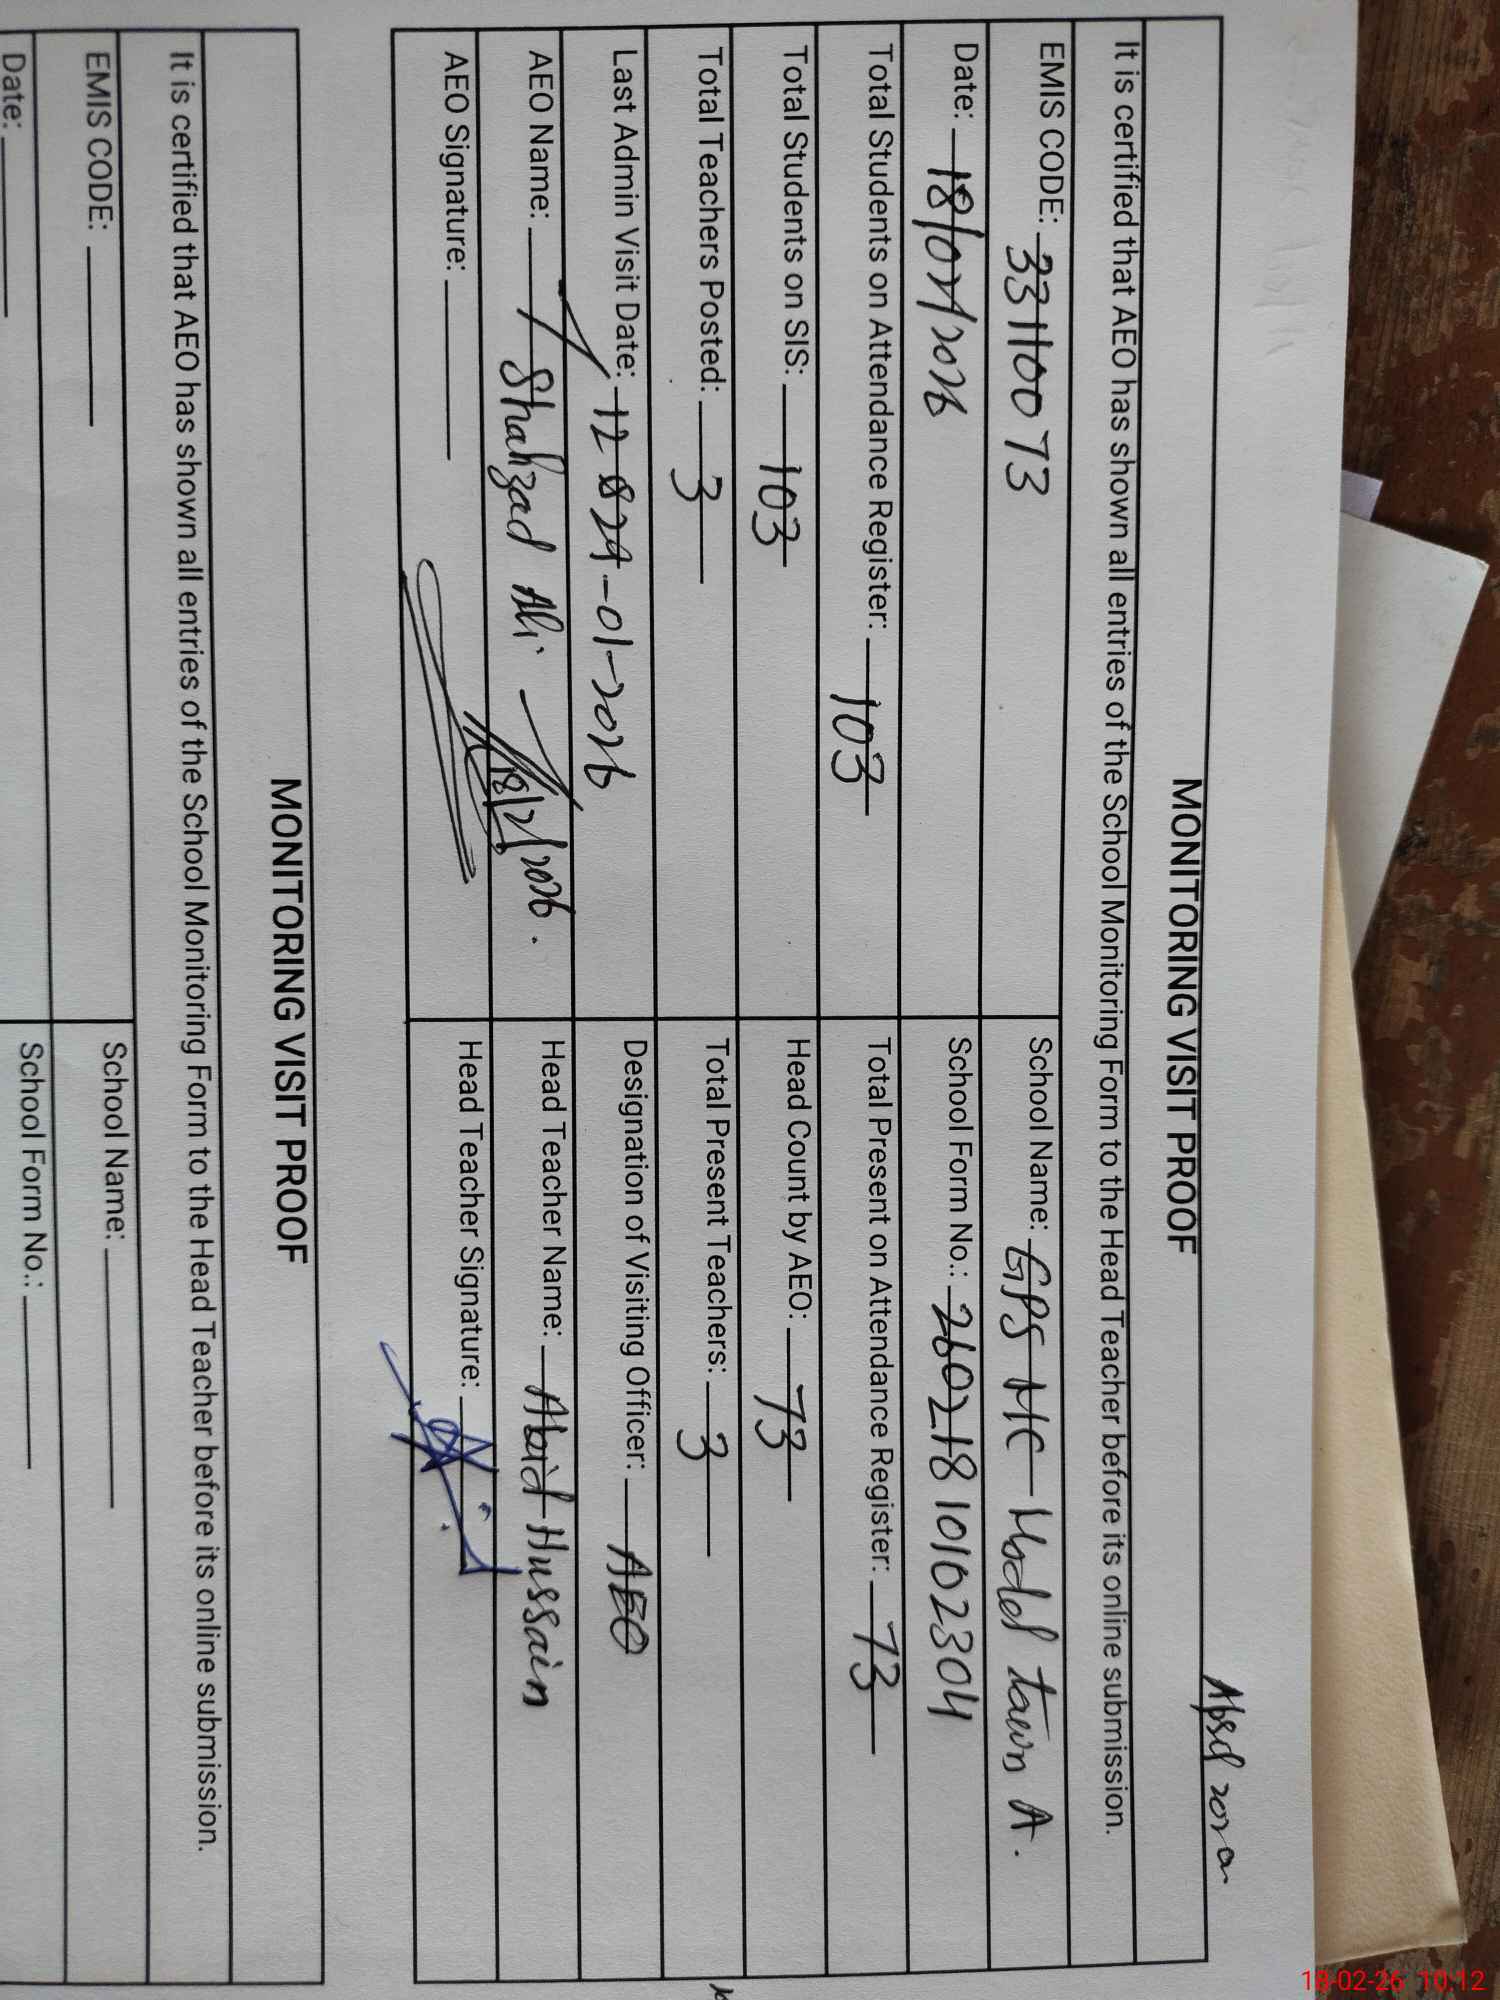 MONITORING VISIT PROOF
It is certified that AEO has shown all entries of the School Monitoring Form to the Head Teacher before its online submission.
EMIS CODE: 33110073 School Name: GPS MC Model town A.
Date: 18/02/2026 School Form No.: 260218 10102304
Total Students on Attendance Register: 103 Total Present on Attendance Register: 73
Total Students on SIS: 103 Head Count by AEO: 73
Total Teachers Posted: 3 Total Present Teachers: 3
Last Admin Visit Date: 29-01-2026 Designation of Visiting Officer: AEO
AEO Name: Shahzad Ali Head Teacher Name: Abid Hussain
AEO Signature: 18/2/2026. Head Teacher Signature:
MONITORING VISIT PROOF
It is certified that AEO has shown all entries of the School Monitoring Form to the Head Teacher before its online submission.
EMIS CODE: School Name:
Date: School Form No.:
18-02-26 10:12